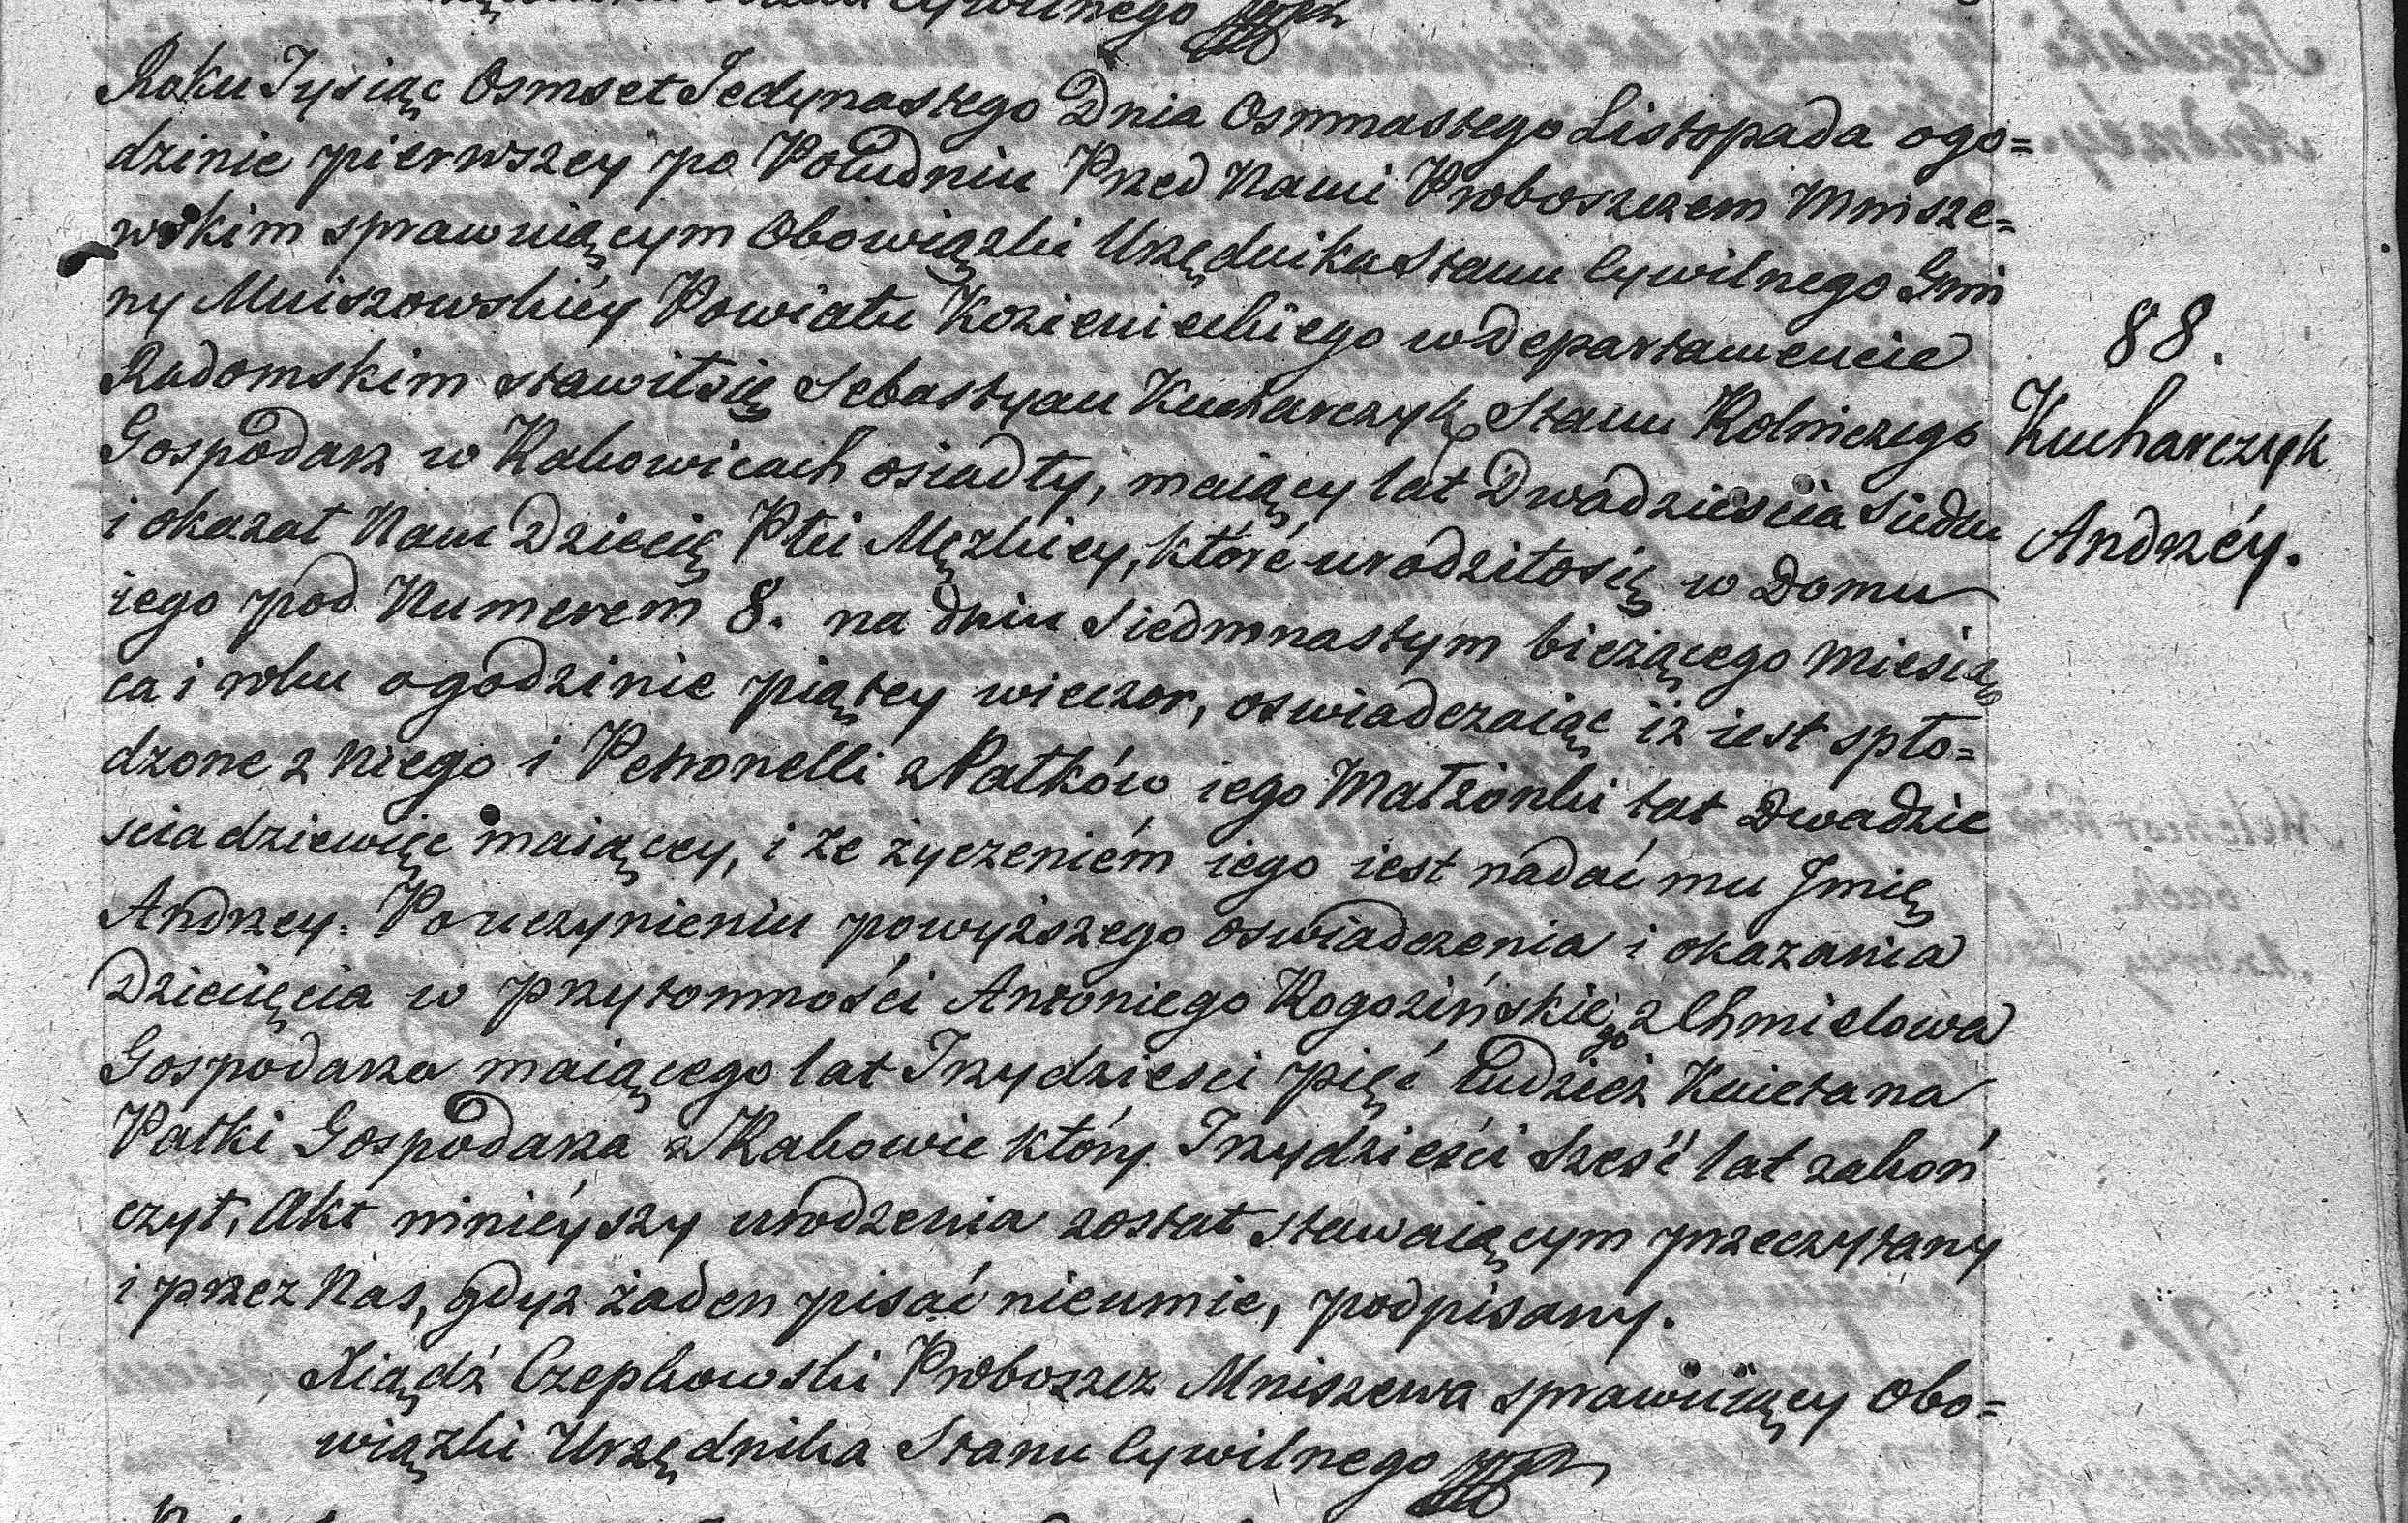 Cywilnego
Roku Tysiąc Osmset Jedynastego Dnia Osmnastego Listopada ogo=
dzinie pierwszey po Południu Przed Nami Proboszczem Mnisze=
wskim sprawuiącym Obowiązki Urzędnika Stanu Cywilnego Gmi
ny Mniszewskiéy Powiatu Kozienickiego w Departamencie
Radomskim stawiłsię Sebastyan Kucharczyk Stanu Rolniczego
Gospodarz w Rakowicach osiadły, maiący lat Dwadzieścia Siedm
i okazał Nam Dziecię Płci Męzkiey, któré urodziłosię w Domu
iego pod Numerem 8. na dniu Siedmnastym bieżącego Miesią
ca i roku ogodzinie piątey wieczor, oswiadczaiąc iż iest spło=
dzone z niego i Petronelli z Patków iego Małżonki lat Dwadzie
scia dziewięc maiącey, i że życzeniém iego iest nadać mu Jmię
Andrzey. Po uczynieniu powyższego oswiadczenia i okazania
Dziecięcia w przytomności Antoniego Rogozińskiego z Chmielowa
Gospodarza maiącego lat Trzydziesci pięć tudzież Kaietana
Patki Gospodarza z Rakowic który Trzydzieści sześć lat zakoń
czył, Akt ninieyszy urodzenia został stawaiącym przeczytany
i przez Nas, gdyż żaden pisać nieumie, podpisany.
Xiądz Czepkowski Proboszcz Mniszewa sprawuiący Obo=
wiązki Urzędnika Stanu Cywilnego
88.
Kucharczyk
Andrzéy.